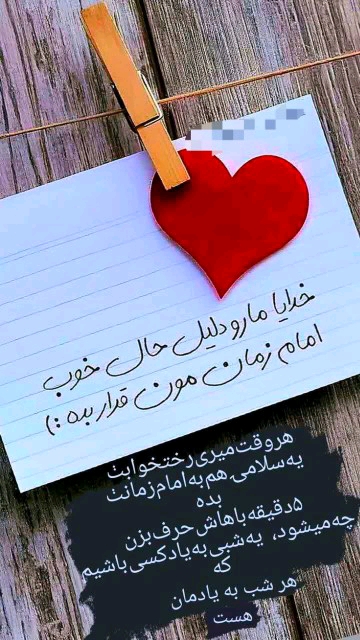 خدایا مارو دلیل حال خوب
امام زمان مون قرار بده :)
هروقت میری رختخوابت
یه سلامی هم به امام زمانت
بده
۵دقیقه باهاش حرف بزن
چه میشود، یه شبی به یاد کسی باشیم
که
هر شب به یادمان
هست